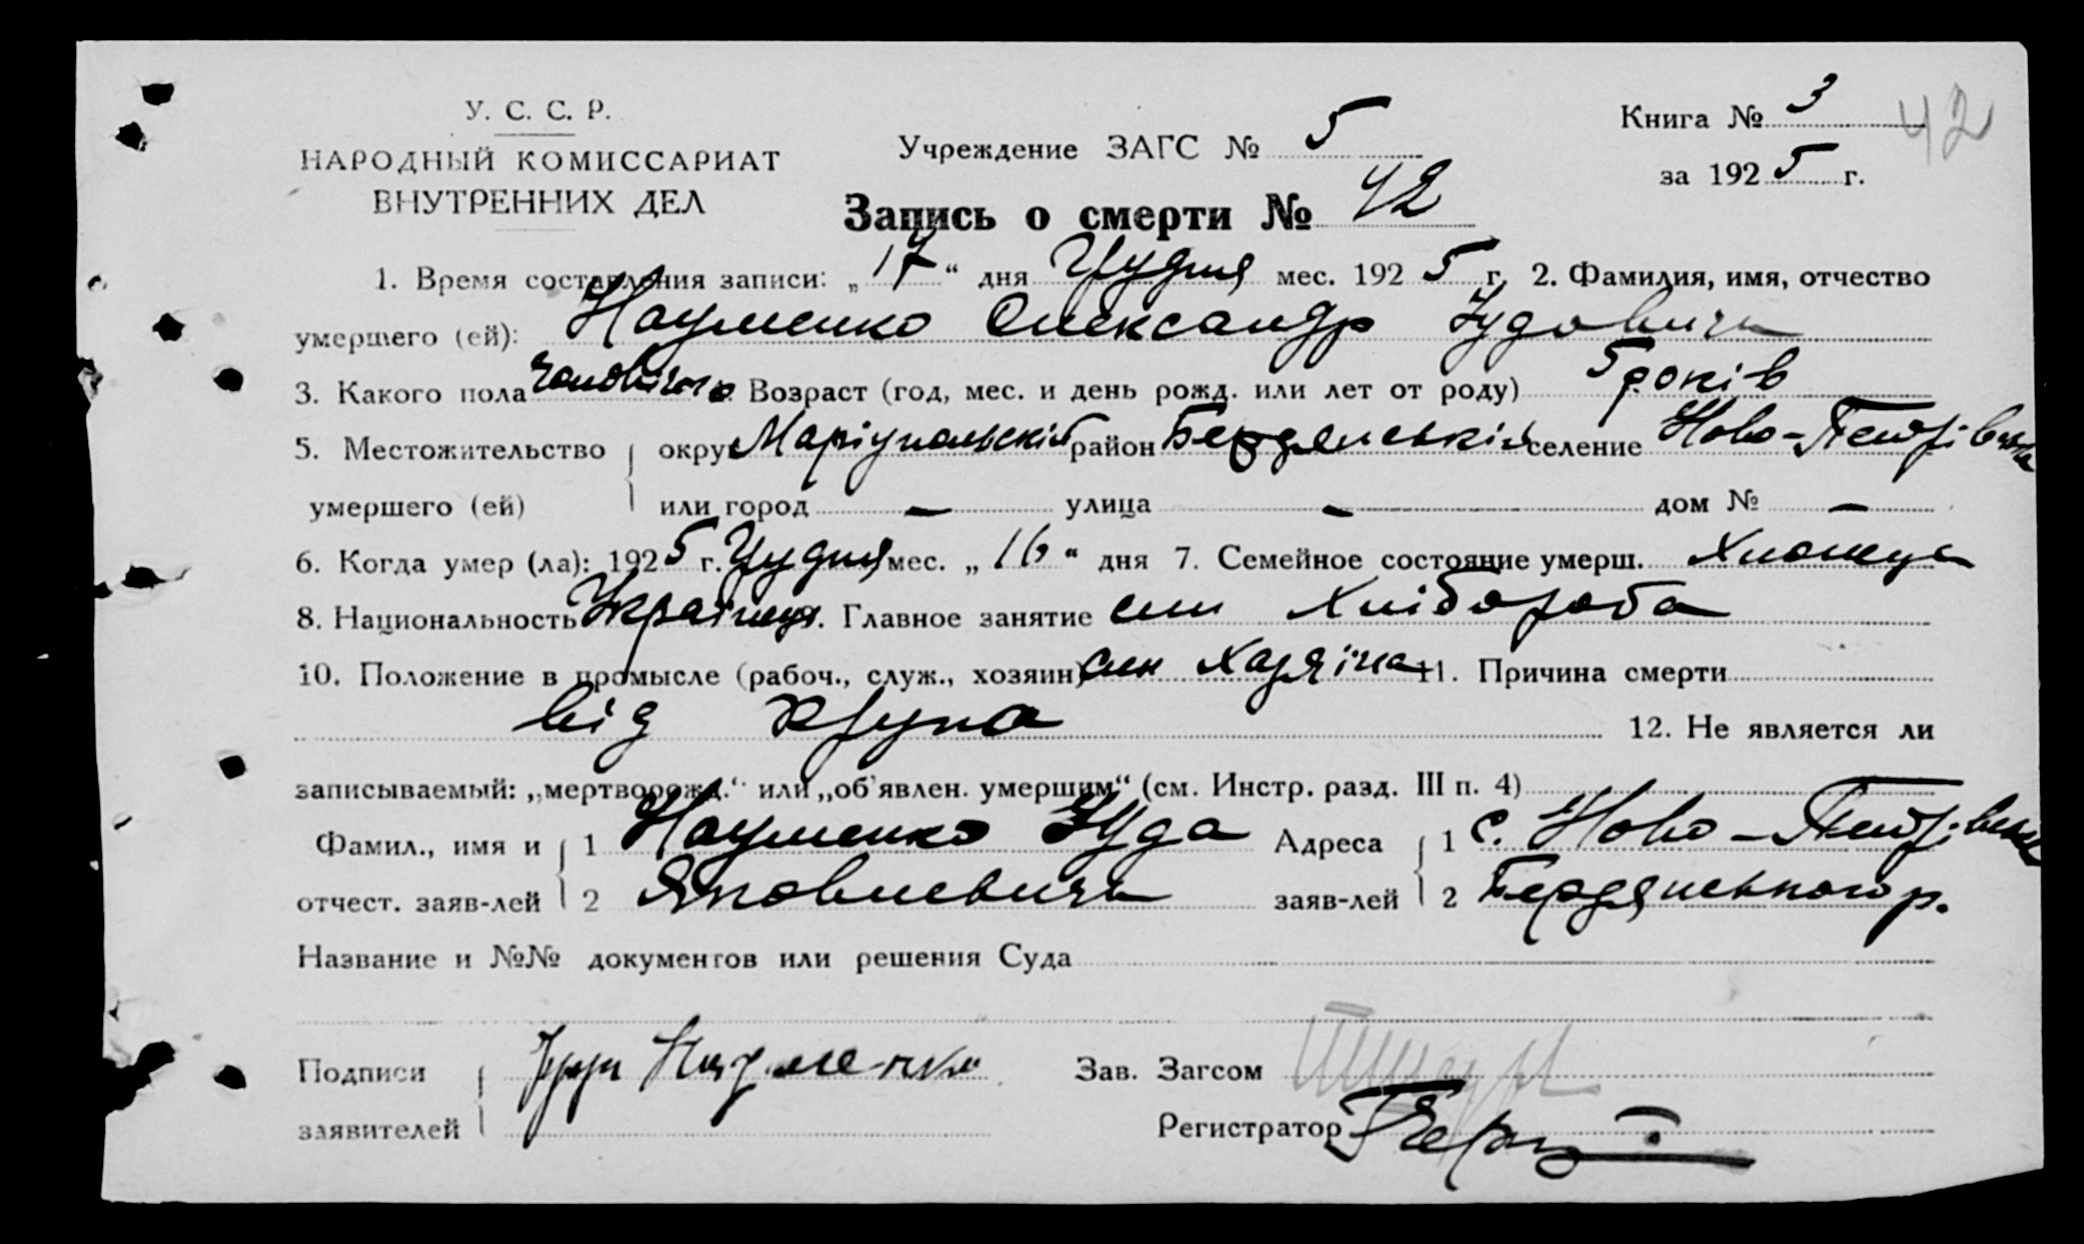 У. С. С. Р.
НАРОДНЫЙ КОМИССАРИАТ
ВНУТРЕННИХ ДЕЛ
Учреждение ЗАГС № 5
Книга № 3 42
за 1925 г.
Запись о смерти № 42
1. Время составления записи: „17“ дня Грудня мес. 1925 г. 2. Фамилия, имя, отчество
умершего (ей): Науменко Олександр Иудович
3. Какого пола чоловічого. Возраст (год, мес. и день рожд. или лет от роду) 5 років
5. Местожительство умершего (ей) округ Маріупольскій район Бердянській селение Ново-Петрівка
или город – улица – дом № –
6. Когда умер (ла): 1925 г. Грудня мес. „16“ дня 7. Семейное состояние умерш. Хлопець
8. Национальность Українця. Главное занятие син Хлібороба
10. Положение в промысле (рабоч., служ., хозяин) син Хазяїна 11. Причина смерти
від крупа 12. Не является ли
записываемый: „мертворожд.“ или „об'явлен. умершим“ (см. Инстр. разд. III п. 4)
Фамил., имя и 1 Науменко Иуда Адреса 1 с. Ново-Петрівка
отчест. заяв-лей 2 Яковлевич заяв-лей 2 Бердянського р.
Название и №№ документов или решения Суда
Подписи Науменко Зав. Загсом
заявителей Регистратор